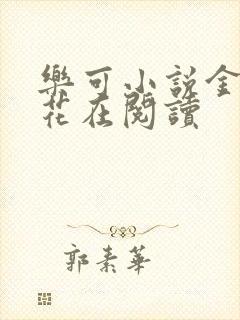 樂可小説金
花在閱讀
郭素華